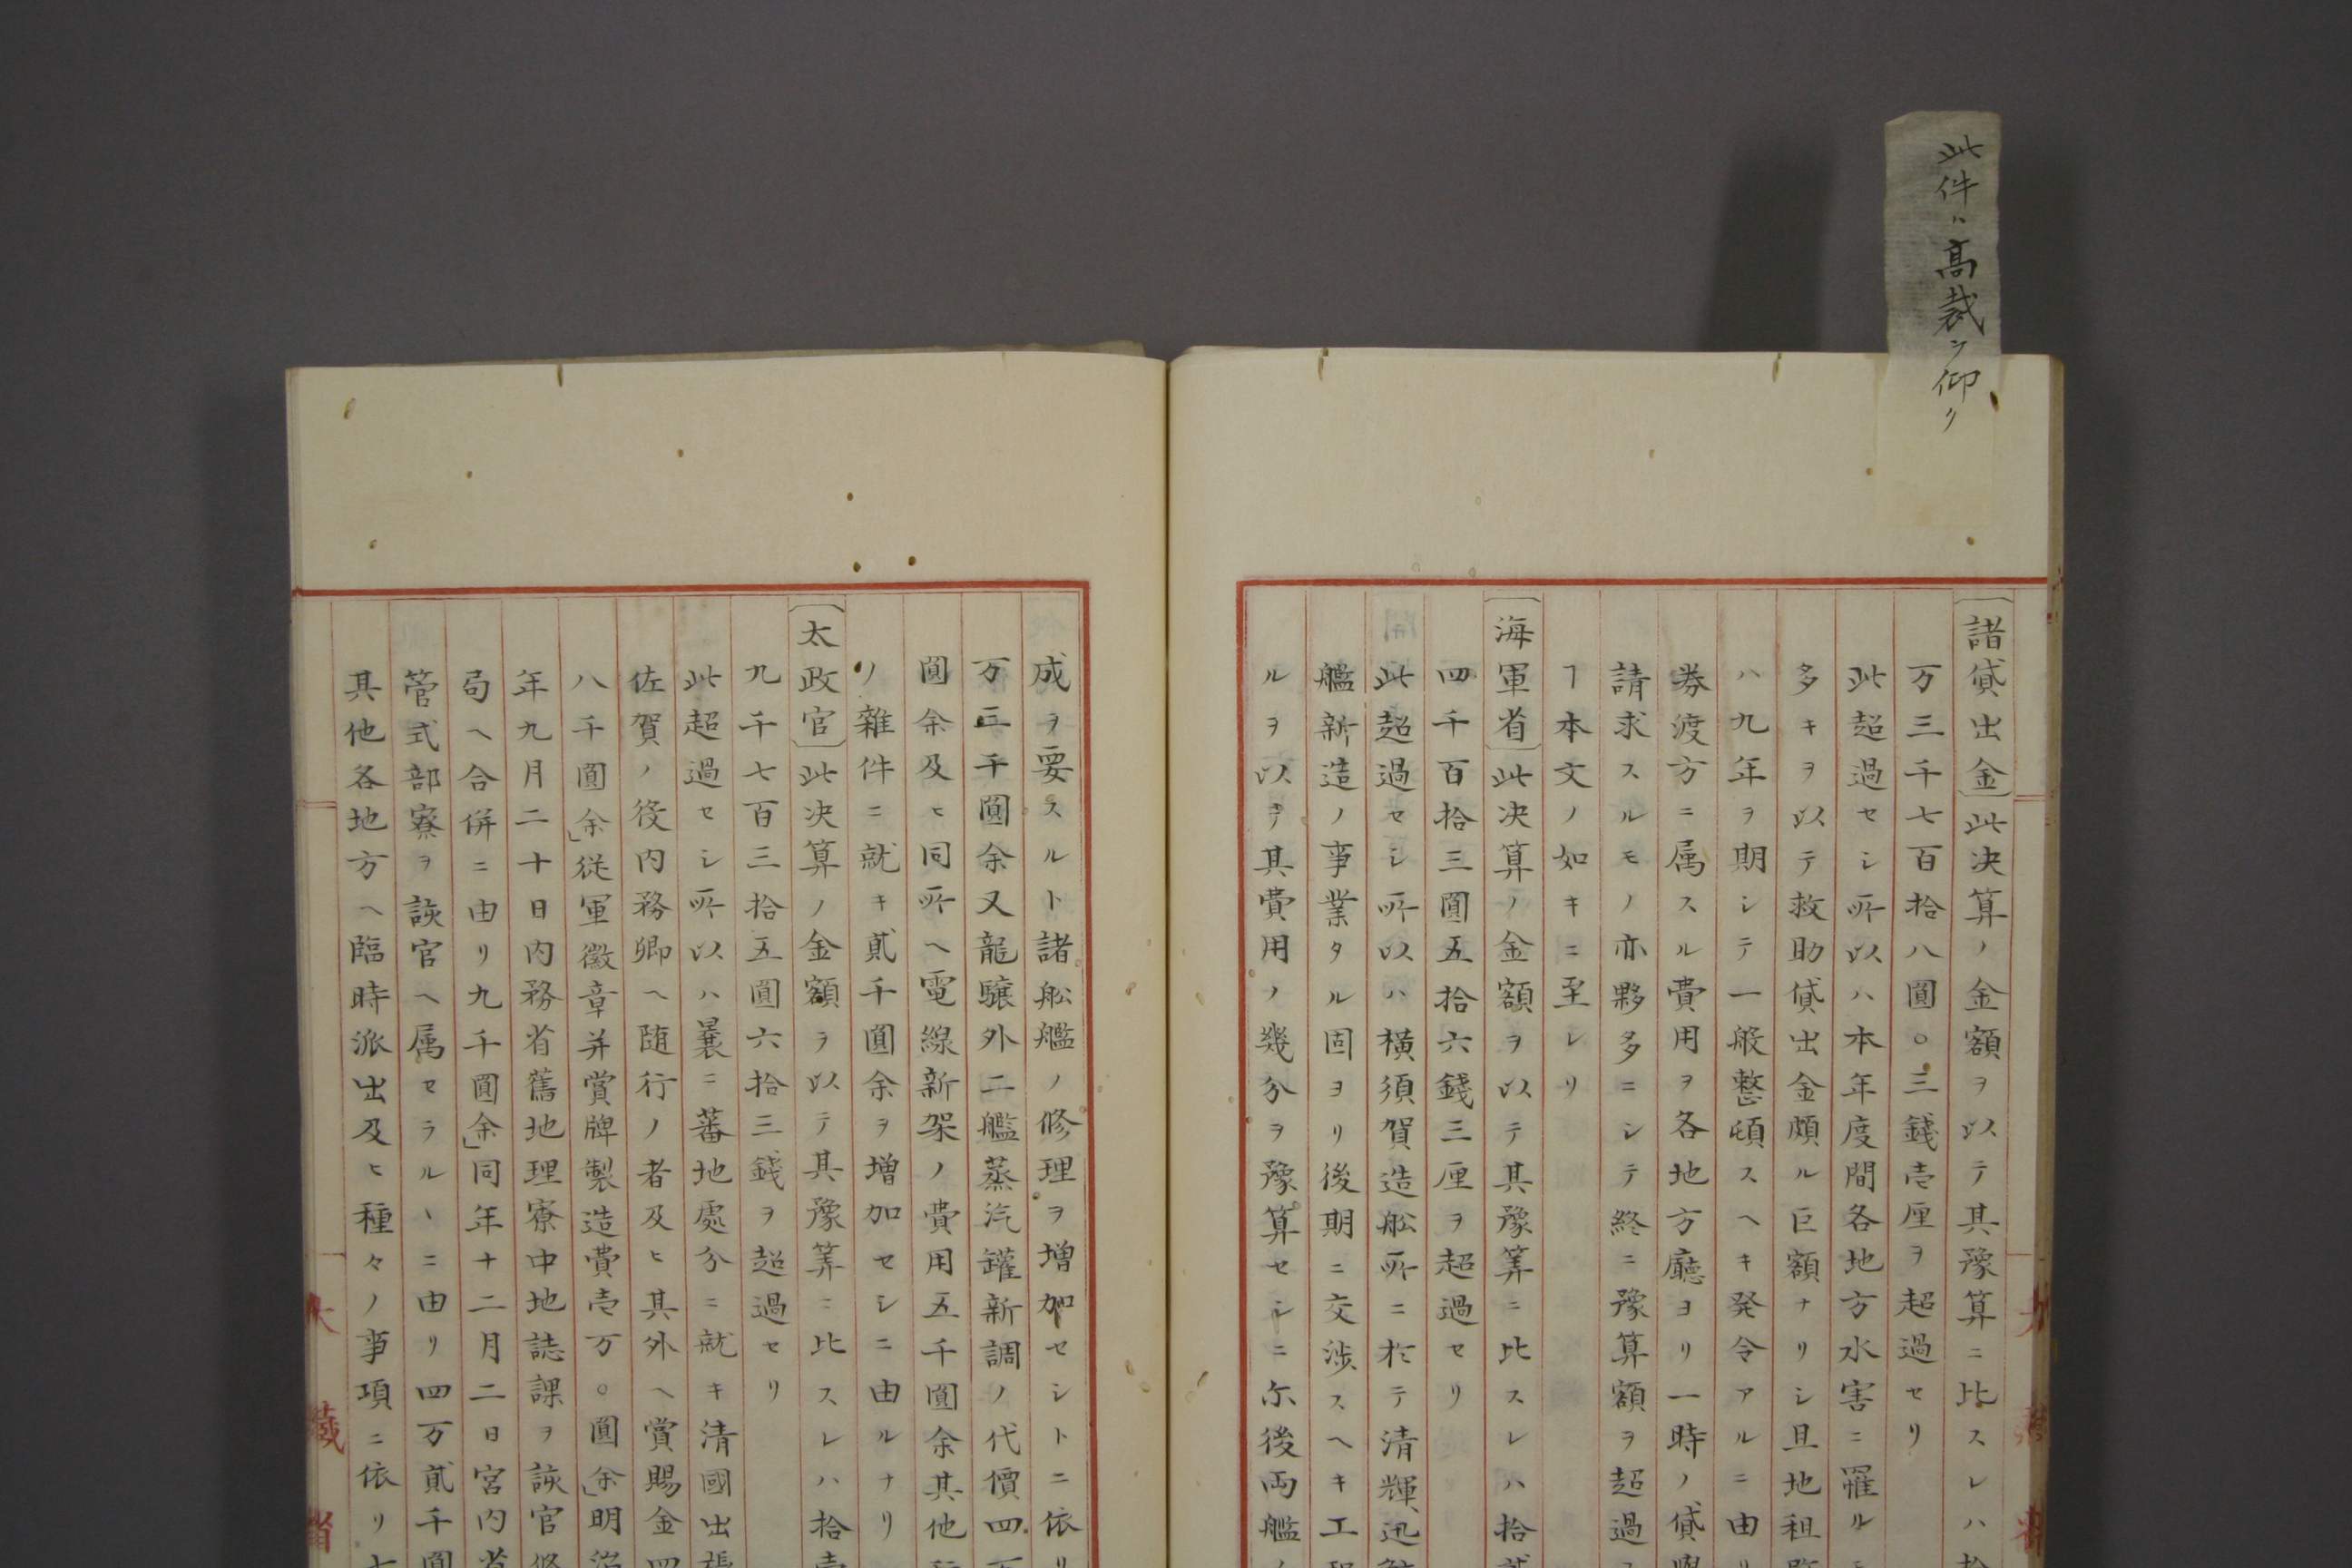 此件ハ高裁ヲ仰ク
〔諸貸出金〕此决算ノ金額ヲ以テ其豫算ニ比スレハ拾
万三千七百拾八圓〇三錢壱厘ヲ超過セリ
此超過セシ所以ハ本年度間各地方水害ニ罹ルモ
多キヲ以テ救助貸出金頗ル巨額ナリシ且地租
ハ九年ヲ期シテ一般整頓スヘキ発令アルニ由リ
券渡方ニ属スル費用ヲ各地方廳ヨリ一時ノ貸
請求スルモノ亦夥多ニシテ終ニ豫算額ヲ超過
ヿ本文ノ如キニ至レリ
〔海軍省〕此决算ノ金額ヲ以テ其豫筭ニ比スレハ拾貳
四千百拾三圓五拾六錢三厘ヲ超過セリ
此超過セシ所以ハ横須賀造舩所ニ於テ清輝迅
艦新造ノ事業タル固ヨリ後期ニ交渉スヘキ工
ルヲ以テ其費用ノ幾分ヲ豫算セシニ尓後両艦ノ
成ヲ要スルト諸舩艦ノ修理ヲ増加セシトニ依リ
万三千圓余又龍驤外二艦蒸汽罐新調ノ代價四万
圓余及ヒ同所ヘ電線新架ノ費用五千圓余其他
ノ雜件ニ就キ貳千圓余ヲ増加セシニ由ルナリ
〔太政官〕此决算ノ金額ヲ以テ其豫筭ニ比スレハ拾壱
九千七百三拾五圓六拾三錢ヲ超過セリ
此超過セシ所以ハ曩ニ蕃地處分ニ就キ清國出張
佐賀ノ役内務卿ヘ随行ノ者及ヒ其外ヘ賞賜金四
八千圓余」従軍徽章并賞牌製造費壱万〇圓余」明治
年九月二十日内務省舊地理寮中地誌課ヲ該官修
局ヘ合併ニ由リ九千圓余」同年十二月二日宮内省
管式部寮ヲ該官ヘ属セラルヽニ由リ四万貳千圓
其他各地方ヘ臨時派出及ヒ種々ノ事項ニ依リ七
大藏省